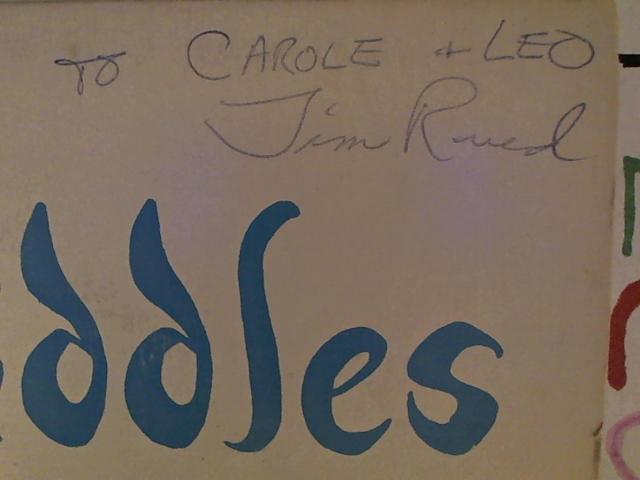 TO CAROLE + LEO
Jim Rued
ddles